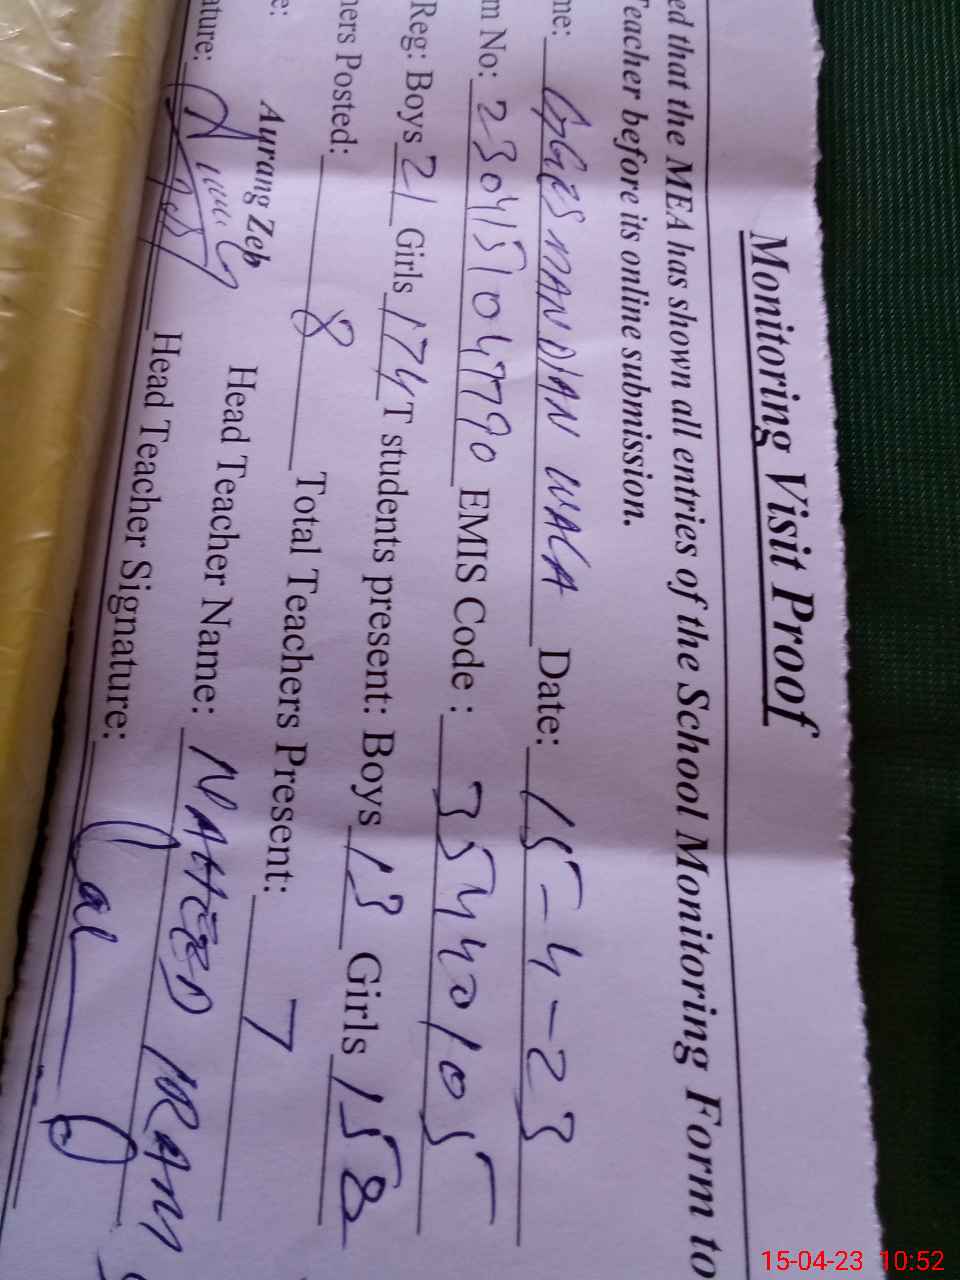 Monitoring Visit Proof
ed that the MEA has shown all entries of the School Monitoring Form to
Teacher before its online submission.
me: GGES MANDIAN WALA Date: 15-4-23
m No: 2304151047790 EMIS Code : 35440105
Reg: Boys 21 Girls 174 T students present: Boys 13 Girls 158
hers Posted: 8 Total Teachers Present: 7
e: Aurang Zeb Head Teacher Name: NAHEED IRAM
ature: Head Teacher Signature:
15-04-23 10:52